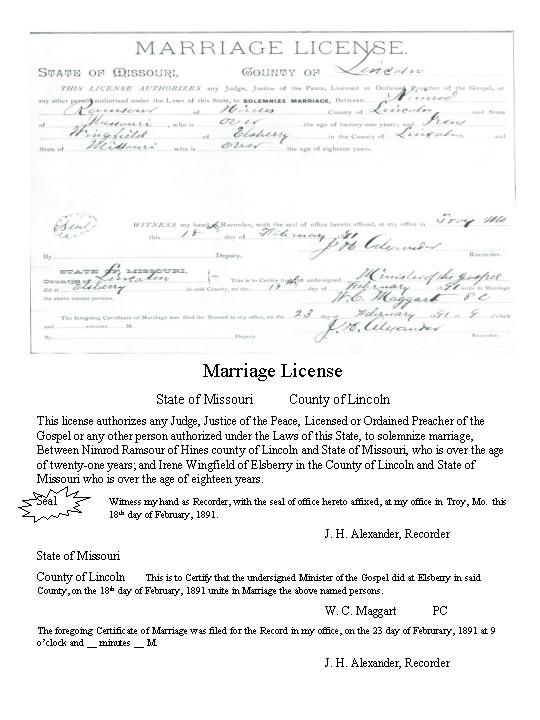 MARRIAGE LICENSE.
STATE OF MISSOURI, COUNTY OF Lincoln
THIS LICENSE AUTHORIZES any Judge, Justice of the Peace, Licensed or Ordained Preacher of the Gospel, or
any other person authorized under the Laws of this State, to SOLEMNIZE MARRIAGE, Between Nimrod
Ramsour of Hines County of Lincoln and State
of Missouri, who is over the age of twenty-one years; and Irene
Wingfield of Elsberry in the County of Lincoln and
State of Missouri who is over the age of eighteen years.
Seal
WITNESS my hand as Recorder, with the seal of office hereto affixed, at my office in Troy Mo
this 18 day of February 91
J H Alexander
By Deputy. Recorder.
STATE OF MISSOURI,
County of Lincoln This is to Certify that the undersigned Minister of the Gospel
did at Elsberry in said County, on the 18th day of February 1891 unite in Marriage
the above named persons. W. C. Maggart P C
The foregoing Certificate of Marriage was filed for Record in my office, on the 23 day of February 91 at 9 o'clock
and minutes M. J. H. Alexander
By Deputy. Recorder.
Marriage License
State of Missouri County of Lincoln
This license authorizes any Judge, Justice of the Peace, Licensed or Ordained Preacher of the
Gospel or any other person authorized under the Laws of this State, to solemnize marriage,
Between Nimrod Ramsour of Hines county of Lincoln and State of Missouri, who is over the age
of twenty-one years; and Irene Wingfield of Elsberry in the County of Lincoln and State of
Missouri who is over the age of eighteen years.
Seal
Witness my hand as Recorder, with the seal of office hereto affixed, at my office in Troy, Mo. this
18th day of February, 1891.
J. H. Alexander, Recorder
State of Missouri
County of Lincoln This is to Certify that the undersigned Minister of the Gospel did at Elsberry in said
County, on the 18th day of February, 1891 unite in Marriage the above named persons.
W. C. Maggart PC
The foregoing Certificate of Marriage was filed for the Record in my office, on the 23 day of Februrary, 1891 at 9
o'clock and __ minutes __ M.
J. H. Alexander, Recorder